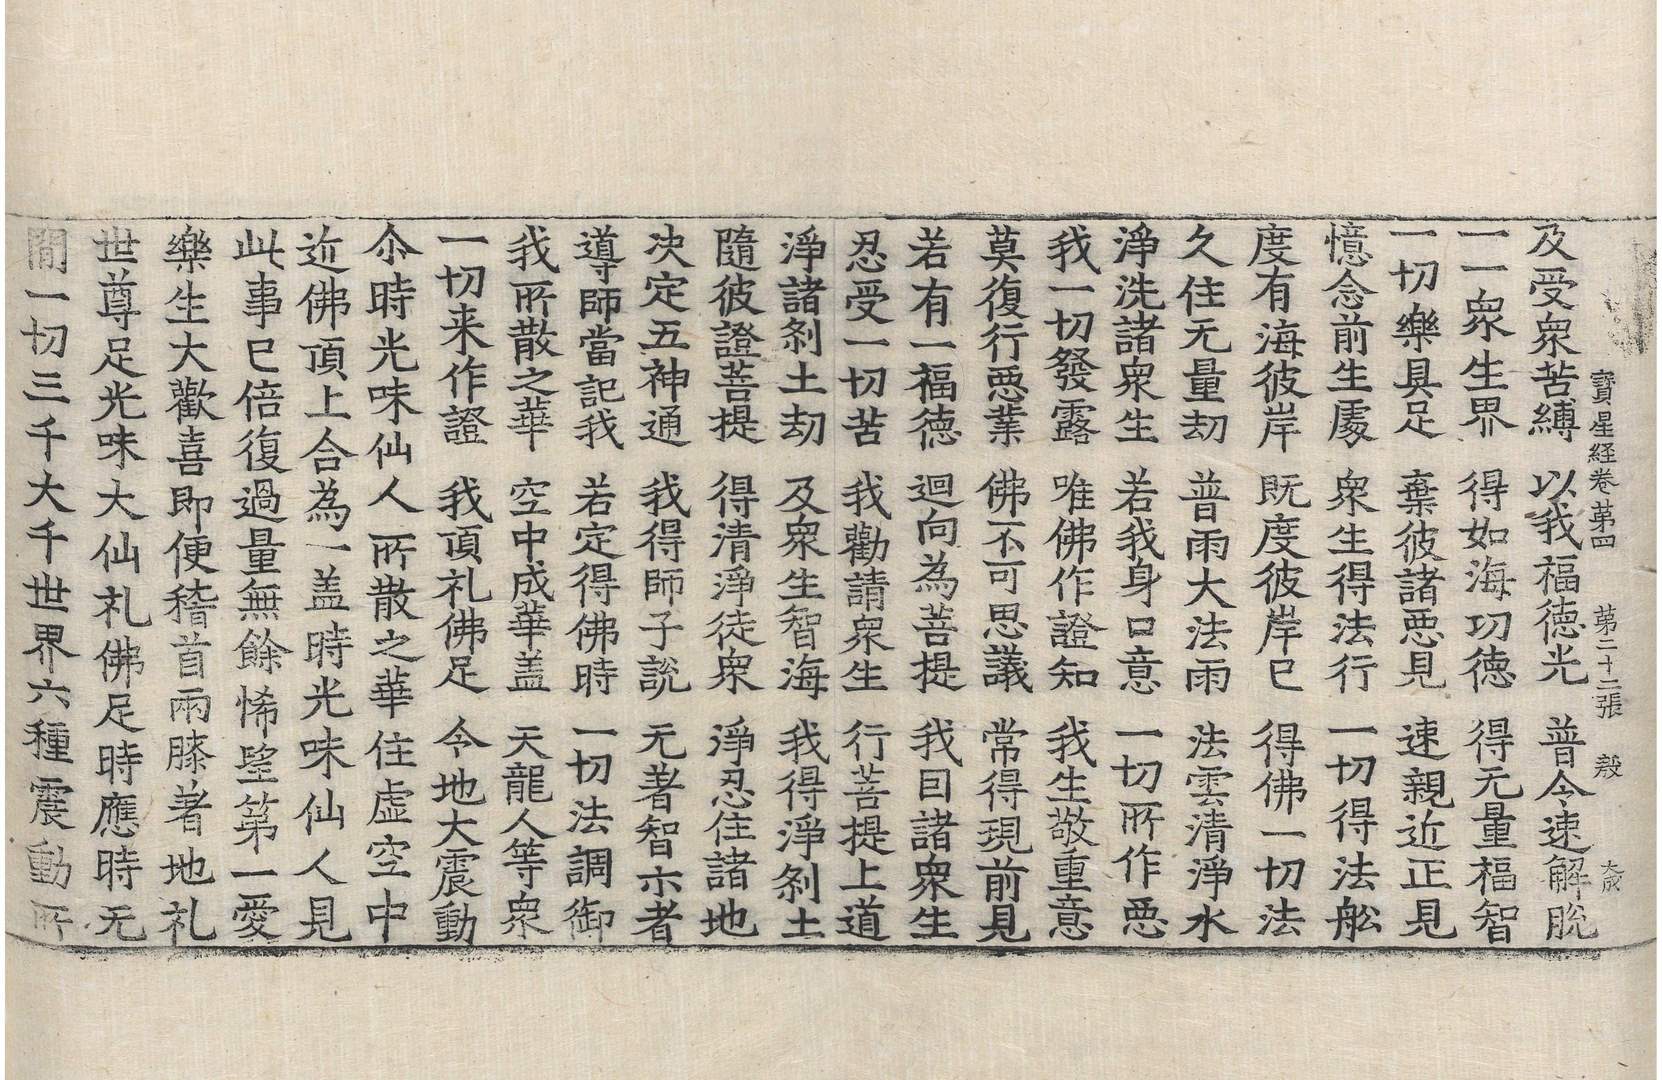 寶星経卷苐四　苐二十二張　殷　大成
及受衆苦縛　以我福徳光　普令速解脫
一一衆生界　得如海功徳　得无量福智
一切樂具足　棄彼諸惡見　速親近正見
憶念前生處　衆生得法行　一切得法舩
度有海彼岸　既度彼岸已　得佛一切法
久住无量劫　普雨大法雨　法雲清淨水
淨洗諸衆生　若我身口意　一切所作惡
我一切發露　唯佛作證知　我生敬重意
莫復行惡業　佛不可思議　常得現前見
若有一福徳　迴向為菩提　我因諸衆生
忍受一切苦　我勸請衆生　行菩提上道
淨諸剎土劫　及衆生智海　我得淨剎土
隨彼證菩提　得清淨徒衆　淨忍住諸地
决定五神通　我得師子說　无著智尒者
導師當記我　若定得佛時　一切法調御
我所散之華　空中成華盖　天龍人等衆
一切来作證　我頂礼佛足　今地大震動
尒時光味仙人所散之華住虛空中
近佛頂上合為一盖時光味仙人見
此事已倍復過量無餘悕望第一愛
樂生大歡喜即便稽首兩膝著地礼
世尊足光味大仙礼佛足時應時无
閒一切三千大千世界六種震動所